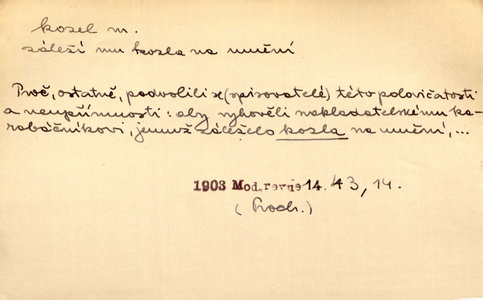 kozel m.
záleží mu kozla na umění
Proč, ostatně, podvolili se (spisovatelé) této polovičatosti
a neupřímnosti: aby vyhověli nakladatelskému ka-
rabáčníkovi, jemuž záleželo kozla na umění, ...
1903 Mod. revue 14. 43, 14.
(Proch.)